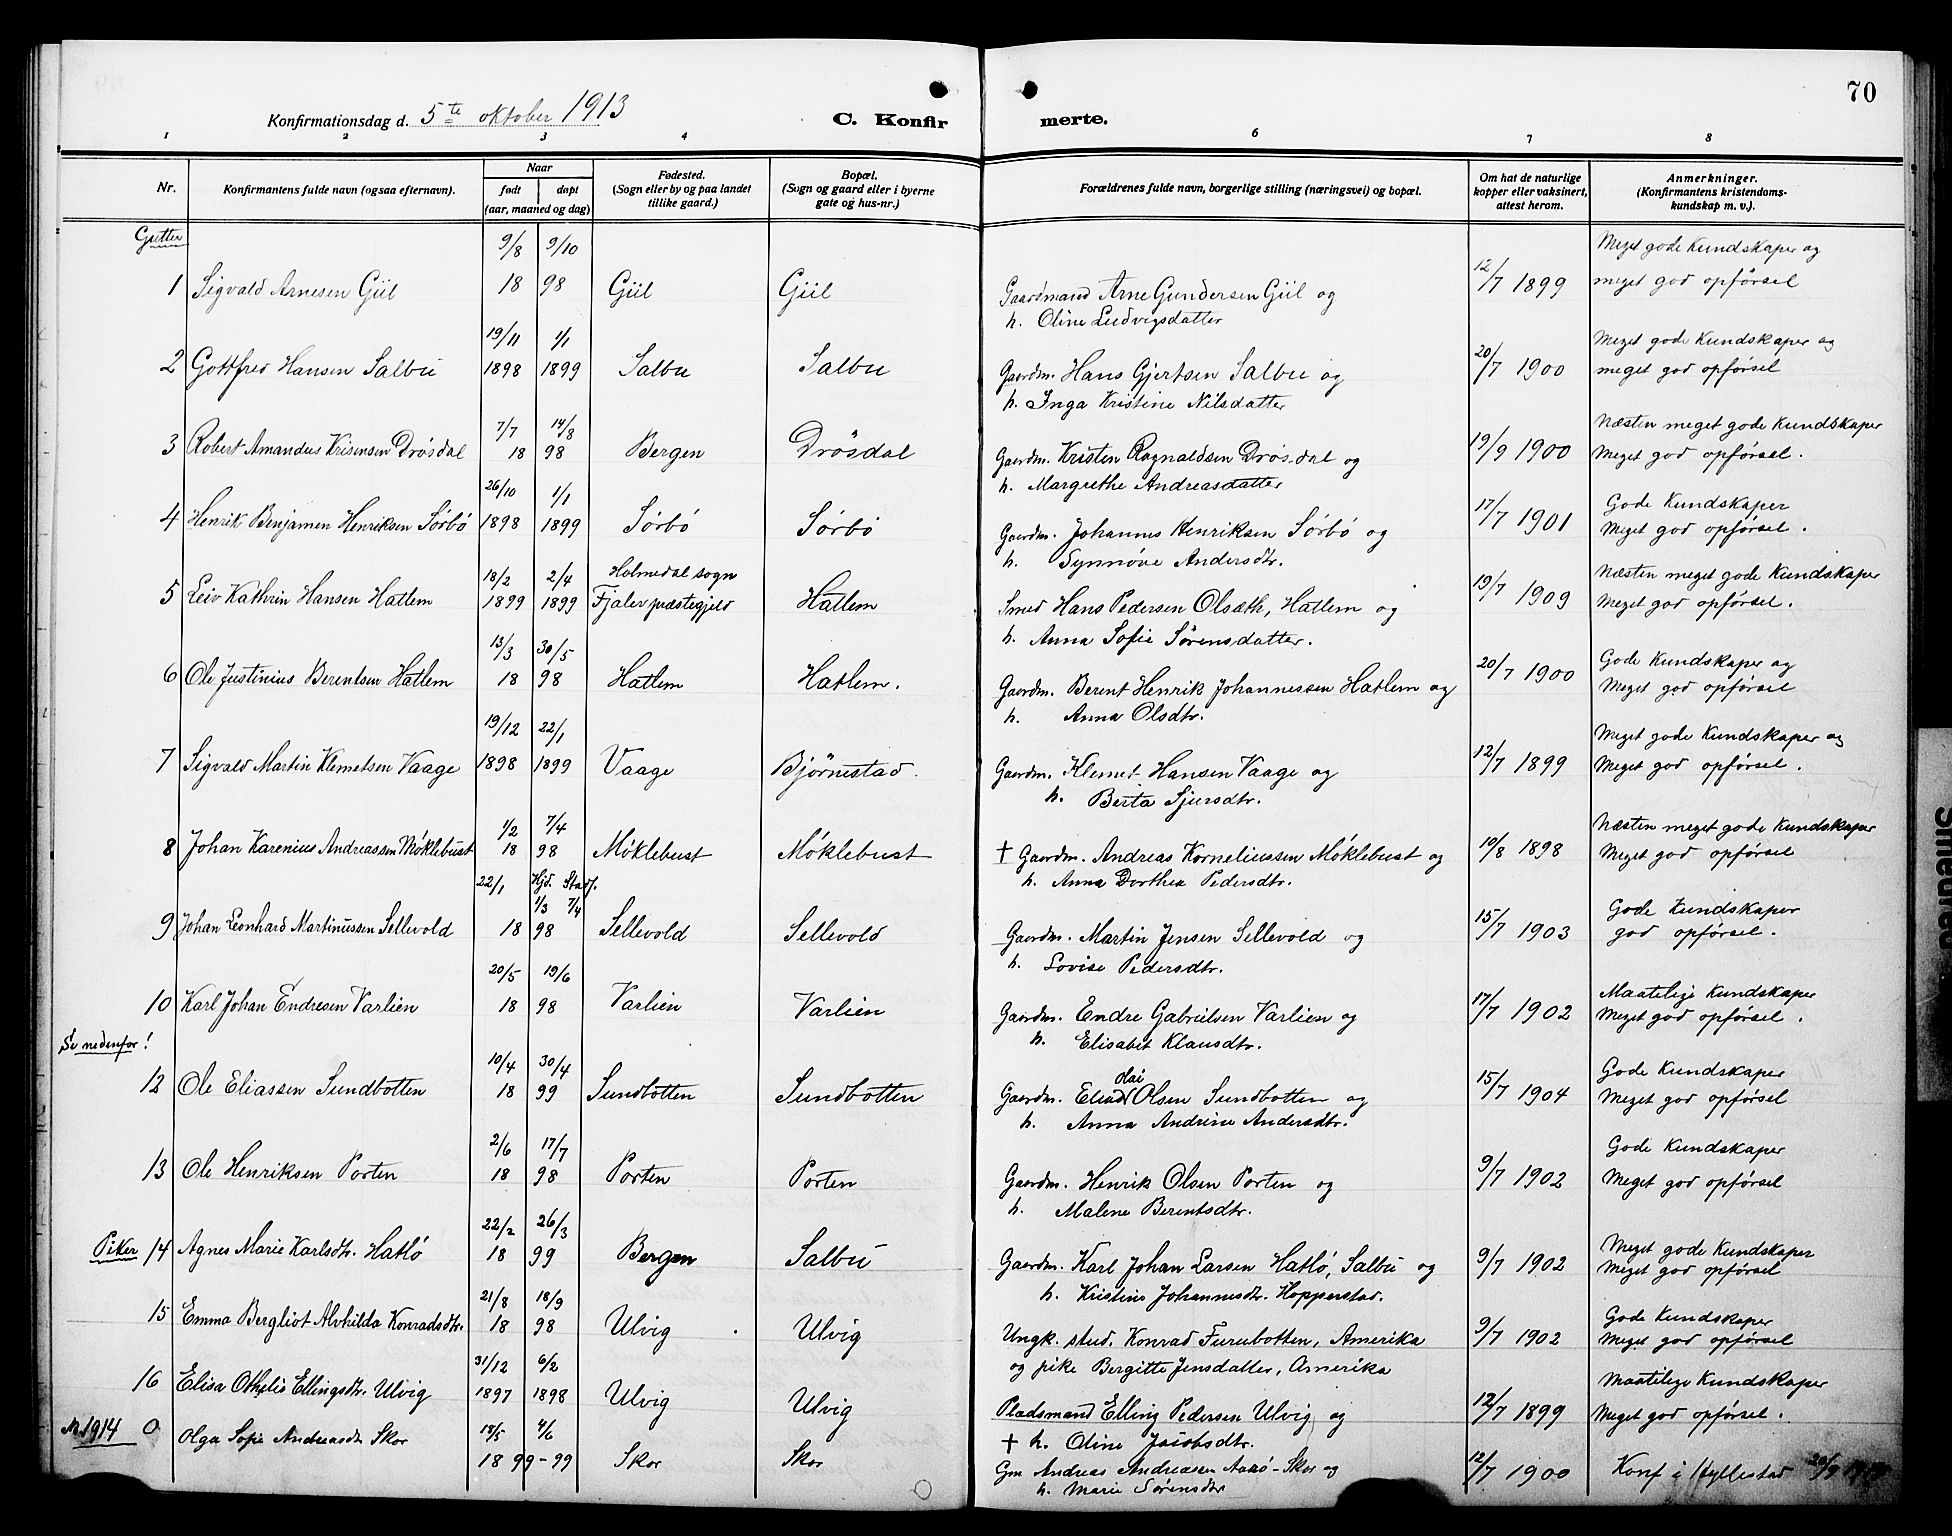 70
Konfirmationsdag d. 5te oktober 1913 C. Konfir merte.
1 2 3 4 5 6 7 8
Nr. Konfirmantens fulde navn (ogsaa efternavn). Naar født døpt (aar, maaned og dag) Fødested. (Sogn eller by og paa landet tillike gaard.) Bopæl. (Sogn og gaard eller i byerne gate og hus-nr.) Forældrenes fulde navn, borgerlige stilling (næringsvei) og bopæl. Om hat de naturlige kopper eller vaksinert, attest herom. Anmerkninger. (Konfirmantens kristendoms-kundskap m. v.).
Gutter 9/8 9/10 Meget gode Kundskaper og
1 Sigvald Arnesen Giil 18 98 Giil Giil Gaardmand Arne Gundersen Giil og 12/7 1899 meget god opførsel
h. Oline Ludvigsdatter
19/11 1/1 Meget gode Kundskaper og
2 Gottfred Hansen Salbu 1898 1899 Salbu Salbu Gaardm. Hans Gjertsen Salbu og 20/7 1900 meget god opførsel
h. Inga Kristine Nilsdatter
7/7 14/8 Næsten meget gode Kundskaper
3 Robert Amandus Krisensen Drösdal 18 98 Bergen Drösdal Gaardm. Kristen Ragnaldsen Drösdal og 19/9 1900 Meget god opførsel.
h. Margrethe Andreasdatter
26/10 1/1 Gode Kundskaper
4 Henrik Benjamen Henriksen Sørbö 1898 1899 Sørbö Sørbö Gaardm. Johannes Henriksen Sørbö og 17/7 1901 Meget god opførsel.
h. Synnøve Andersdtr.
18/2 2/4 Holmedal sogn Næsten meget gode Kundskaper
5 Leiv Kathrin Hansen Hatlem 1899 1899 Fjaler præstegjeld Hatlem Smed Hans Pedersen Olsæth, Hatlem og 19/7 1909 Meget god opførsel.
h. Anna Sofie Sørensdatter.
13/3 30/5 Gode Kundskaper og
6 Ole Justinius Berentsen Hatlem 18 98 Hatlem Hatlem. Gaardm. Berent Henrik Johannessen Hatlem og 20/7 1900 Meget god opførsel
h. Anna Olsdtr.
19/12 22/1 Meget gode Kundskaper og
7 Sigvald Martin Klemetsen Vaage 1898 1899 Vaage Bjørnestad. Gaardm. Klemet Hansen Vaage og 12/7 1899 Meget god opførsel.
h. Berta Sjursdtr.
1/2 7/4 Næsten meget gode Kundskaper
8 Johan Karenius Andreassen Möklebust 18 98 Möklebust Möklebust † Gaardm. Andreas Korneliussen Möklebust og 10/8 1898 Meget god opførsel
h. Anna Dorthea Pedersdtr.
22/1 Hjd. 1/3 Stadf. 7/4 Gode Kundskaper
9 Johan Leonhard Martinussen Sellevold 18 98 Sellevold Sellevold Gaardm. Martin Jensen Sellevold og 15/7 1903 god opførsel.
h. Lovise Pedersdtr.
20/5 19/6 Maatelige Kundskaper
10 Karl Johan Endresen Varlien 18 98 Varlien Varlien Gaardm. Endre Gabrielsen Varlien og 17/7 1902 Meget god opførsel.
h. Elisabet Klausdtr.
Se nedenfor!
10/4 30/4 olai Gode Kundskaper
12 Ole Eliassen Sundbotten 18 99 Sundbotten Sundbotten Gaardm. Elias Olsen Sundbotten og 15/7 1904 Meget god opførsel
h. Anna Andrine Andersdtr.
2/6 17/7 Gode Kundskaper
13 Ole Henriksen Porten 18 98 Porten Porten Gaardm. Henrik Olsen Porten og 9/7 1902 Meget god opførsel
h. Malene Berentsdtr.
22/2 26/3 Meget gode Kundskaper
Piker 14 Agnes Marie Karlsdtr. Hatlö 18 99 Bergen Salbu Gaardm. Karl Johan Larsen Hatlö, Salbu og 9/7 1902 Meget god opførsel
h. Kristine Johannesdtr. Hopperstad.
21/8 18/9 Gode Kundskaper
15 Emma Bergliot Alvhilda Konradsdtr. 18 98 Ulvig Ulvig Ungk. stud. Konrad Furubotten, Amerika 9/7 1902 Meget god opførsel
og pike Bergitte Jensdatter, Amerika
31/12 6/2 Maatelige Kundskaper
16 Elisa Othelie Ellingsdtr. Ulvig 1897 1898 Ulvig Ulvig Pladsmand Elling Pedersen Ulvig og 12/7 1899 Meget god opførsel.
† h. Oline Jacobsdtr.
1914 0 Olga Sofie Andreasdtr Skor 18/5 4/6 18 99 - 99 Skor Skor Gm Andreas Andreasen Aarö - Skor og 12/7 1900 Konf i Hyllestad
h. Marie Sørensdtr